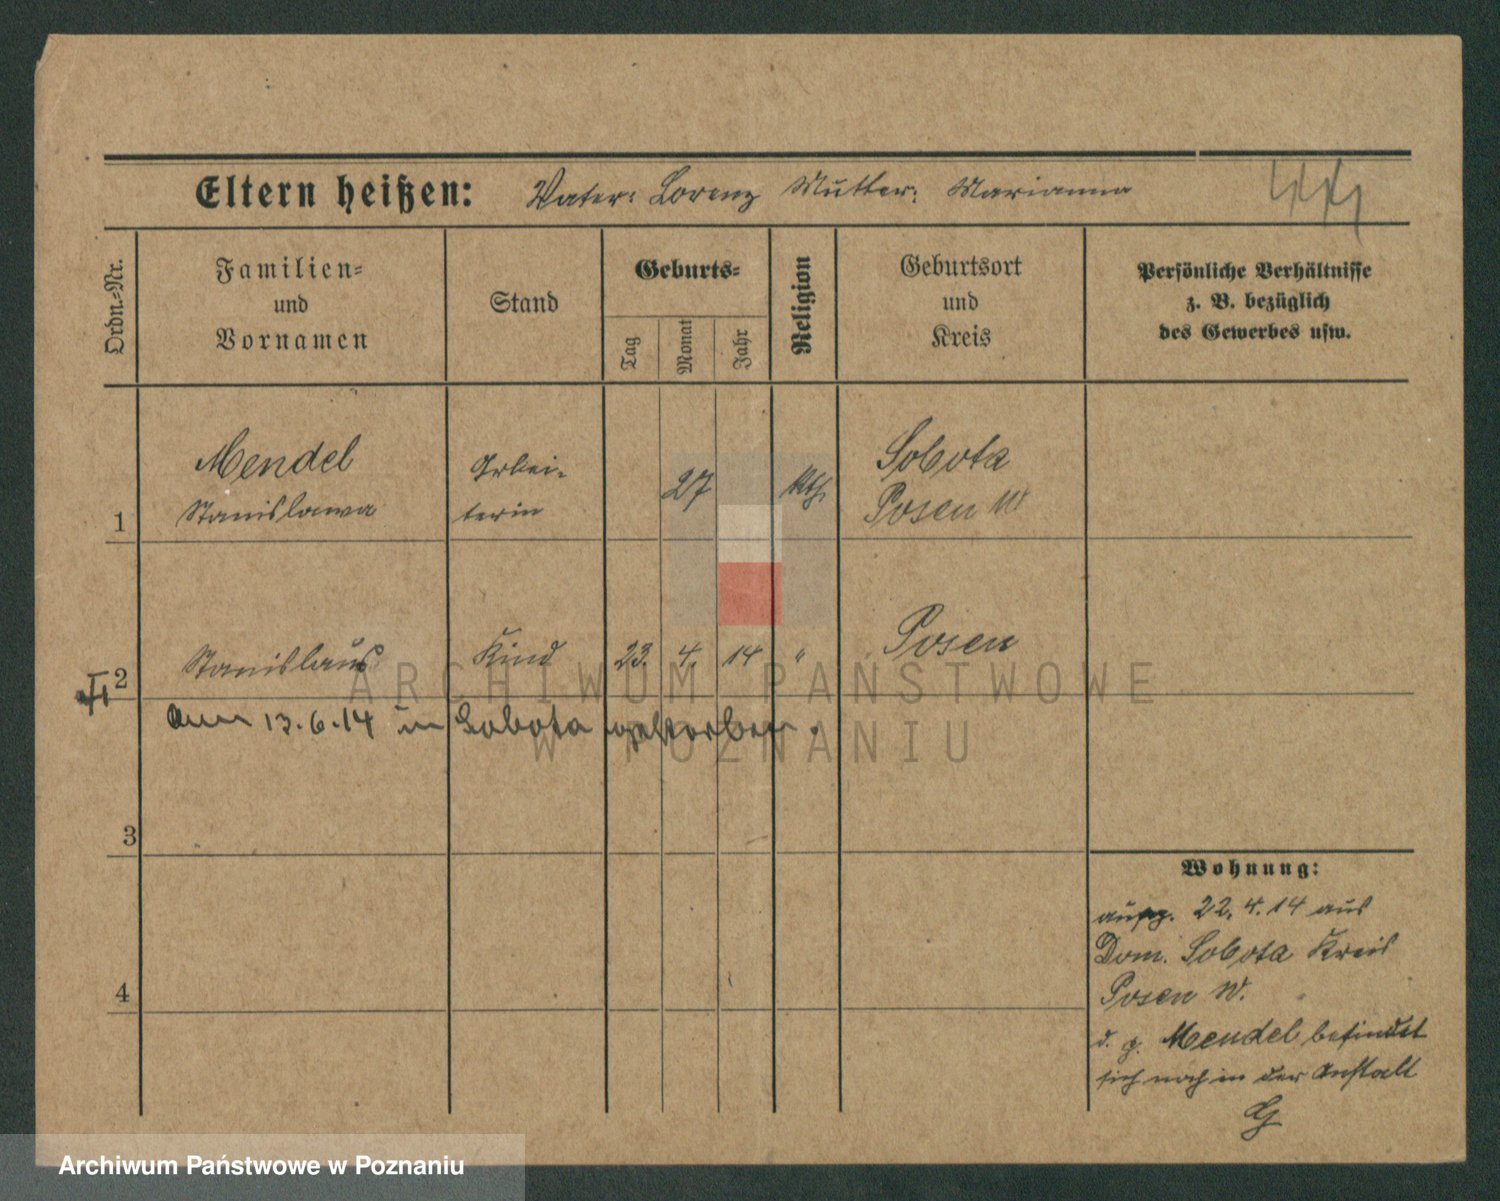 Eltern heißen: Vater: Lorenz Mutter: Marianna
Ordn.-Nr.
Familien-
und
Vornamen
Stand
Geburts-
Tag
Monat
Jahr
Religion
Geburtsort
und
Kreis
Persönliche Verhältnisse
z. B. bezüglich
des Gewerbes usw.
1
Mendel
Stanislawa
Arbei-
terin
27
kth.
Sobota
Posen W
2
Stanislaus
Kind
23. 4. 14
"
Posen
am 13.6.14 in Sobota gestorben.
3
4
Wohnung:
22. 4. 14 aus
Dom. Sobota Kreis
Posen W.
d. g. Mendel befindet
sich noch in der Anstalt
G
ARCHIWUM PAŃSTWOWE
W POZNANIU
Archiwum Państwowe w Poznaniu